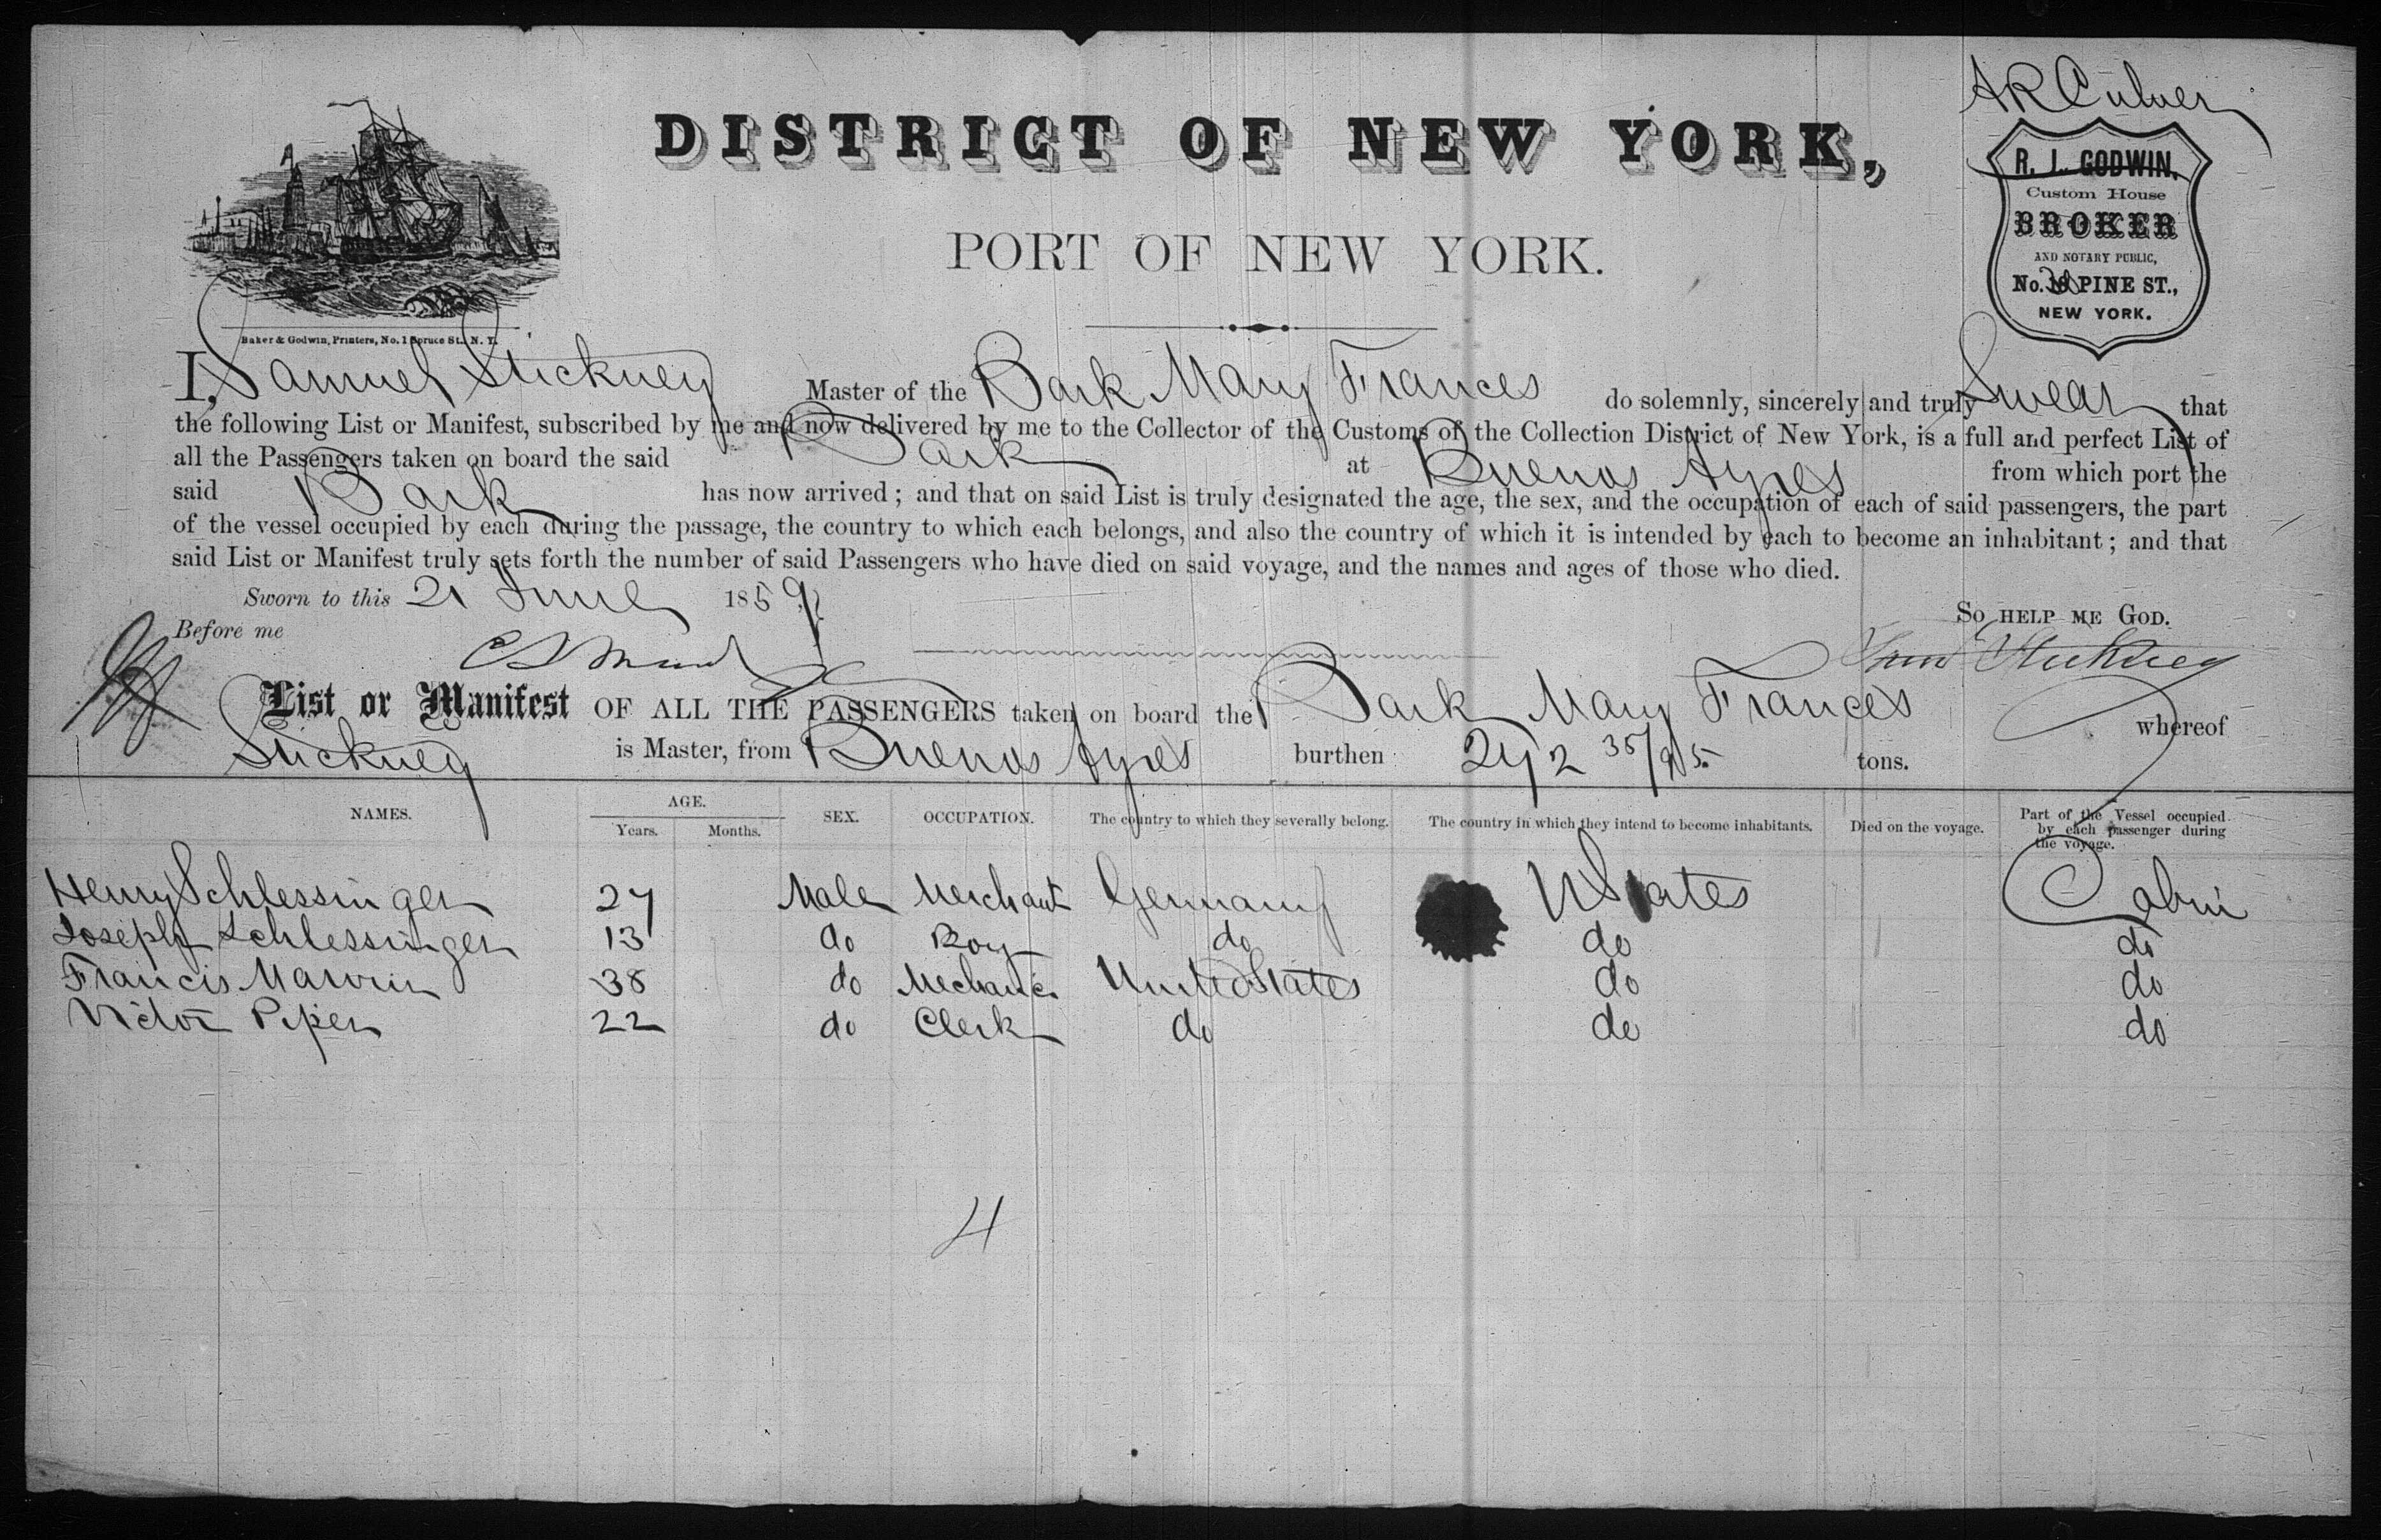 A R Culver
DISTRICT OF NEW YORK,
PORT OF NEW YORK.
R. J. GODWIN,
Custom House
BROKER
AND NOTARY PUBLIC,
No. PINE ST.,
NEW YORK.
Baker & Godwin, Printers, No. 1 Spruce St. N. Y.
I, Samuel Stickney Master of the Bark Mary Frances do solemnly, sincerely and truly Swear that
the following List or Manifest, subscribed by me and now delivered by me to the Collector of the Customs of the Collection District of New York, is a full and perfect List of
all the Passengers taken on board the said Bark at Buenos Ayres from which port the
said Bark has now arrived; and that on said List is truly designated the age, the sex, and the occupation of each of said passengers, the part
of the vessel occupied by each during the passage, the country to which each belongs, and also the country of which it is intended by each to become an inhabitant; and that
said List or Manifest truly sets forth the number of said Passengers who have died on said voyage, and the names and ages of those who died.
Sworn to this 21 June 1859
So HELP ME GOD.
Before me
Saml Stickney
List or Manifest OF ALL THE PASSENGERS taken on board the Bark Mary Frances whereof
Stickney is Master, from Buenos Ayres burthen 292 35/95 tons.
NAMES. AGE. Years. Months. SEX. OCCUPATION. The country to which they severally belong. The country in which they intend to become inhabitants. Died on the voyage. Part of the Vessel occupied by each passenger during the voyage.
Henry Schlessinger 27 Male Merchant Germany U States Cabin
Joseph Schlessinger 13 do Boy do do do
Francis Marvin 38 do Mechanic United States do do
Victor Piper 22 do Clerk do do do
4